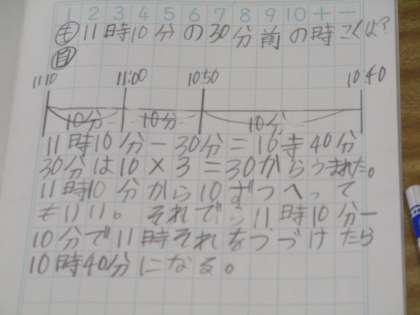 1 2 3 4 5 6 7 8 9 10 十 一
も 11時10分の30分前の時こくは?
自
11:10 11:00 10:50 10:40
10分 10分 10分
11時10分-30分=10時40分
30分は10×3=30からうまれた。
11時10分から10ずつへって
もいい。それでも11時10分-
10分で11時それをつづけたら
10時40分になる。